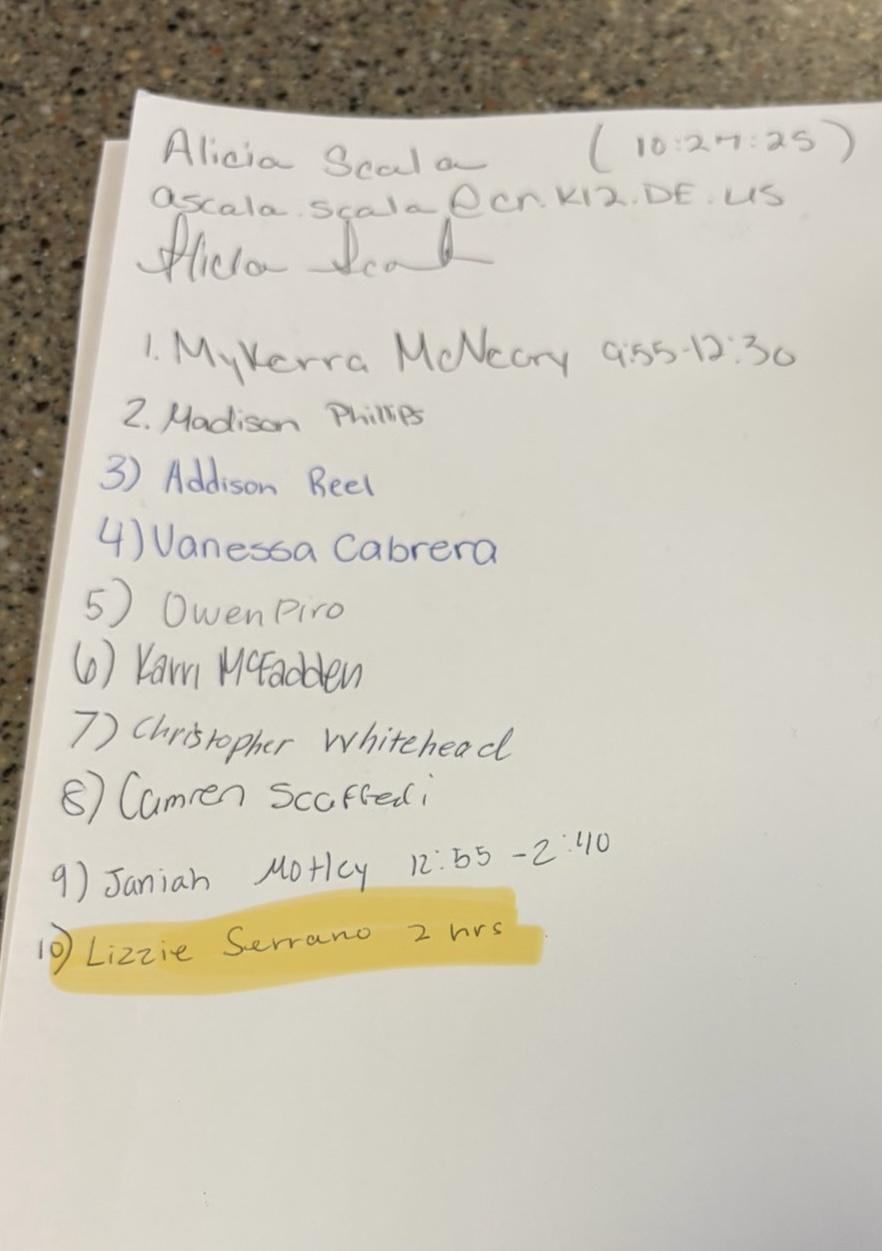 Alicia Scala (10:27:25)
ascala.scala@cr.K12.DE.US
Alicia Scala
1. MyKerra McNeary 9:55-12:30
2. Madison Phillips
3) Addison Reel
4) Vanessa Cabrera
5) Owen Piro
6) Karri McFadden
7) Christopher Whitehead
8) Camren Scaffedi
9) Janiah Motley 12:55 - 2:40
10) Lizzie Serrano 2 hrs